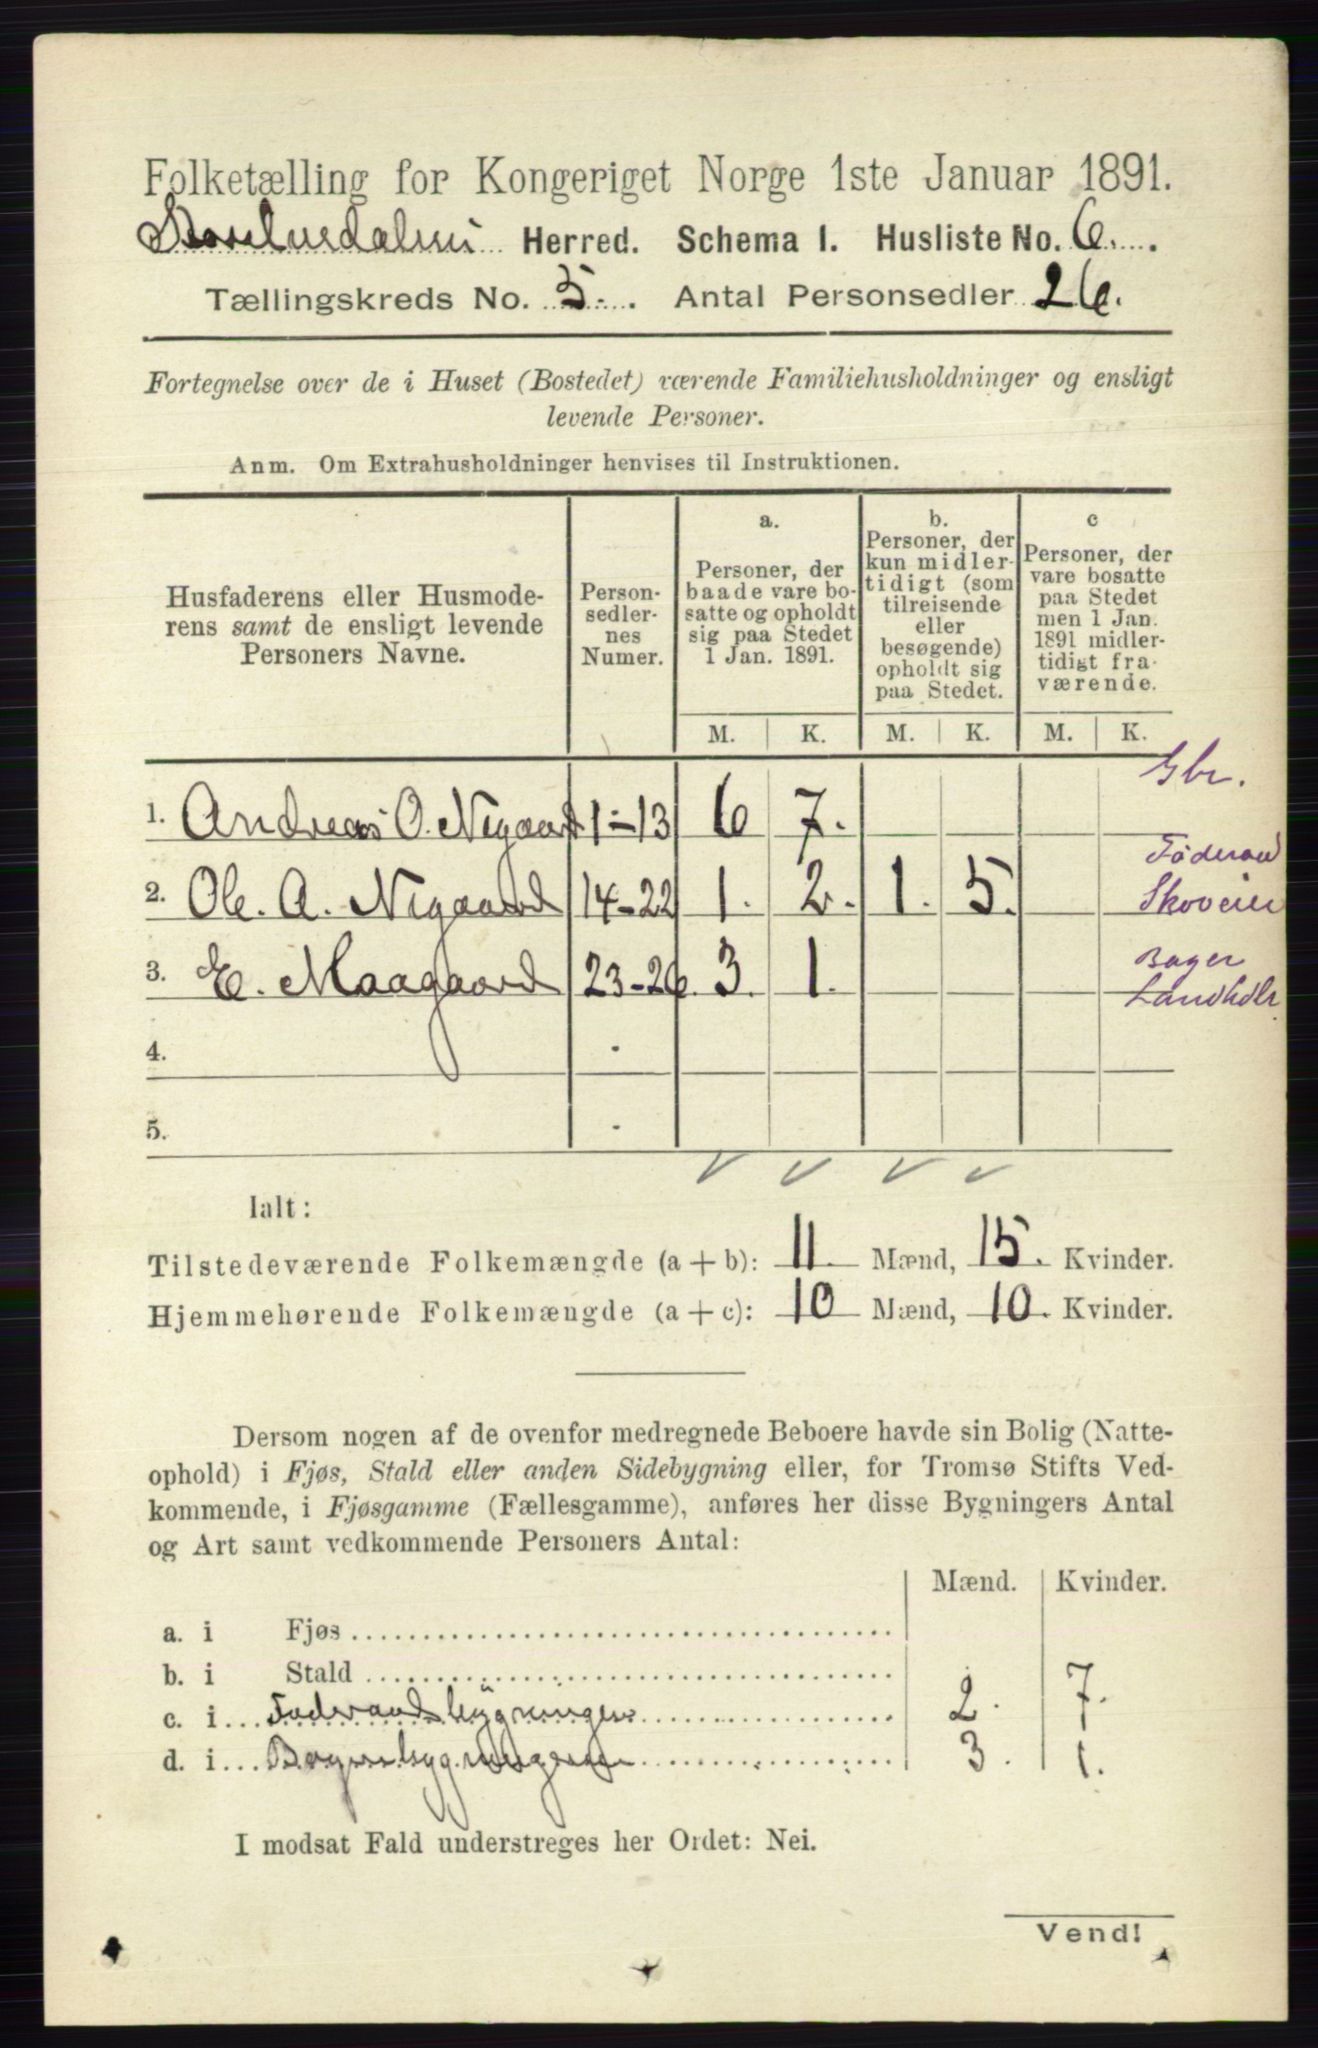 Folketælling for Kongeriget Norge 1ste Januar 1891.
Storelvedalens Herred. Schema 1. Husliste No. 6.
Tællingskreds No. 5. Antal Personsedler 26.
Fortegnelse over de i Huset (Bostedet) værende Familiehusholdninger og ensligt
levende Personer.
Anm. Om Extrahusholdninger henvises til Instruktionen.
Husfaderens eller Husmode-
rens samt de ensligt levende
Personers Navne.
Person-
sedler-
nes
Numer.
a.
Personer, der
baade vare bo-
satte og opholdt
sig paa Stedet
1 Jan. 1891.
b.
Personer, der
kun midler-
tidigt (som
tilreisende
eller
besøgende)
opholdt sig
paa Stedet.
c
Personer, der
vare bosatte
paa Stedet
men 1 Jan.
1891 midler-
tidigt fra-
værende.
M. K. M. K. M. K.
Gbr.
1. Andreas O. Negaard 1-13 6 7.
Føderaad
2. Ole. A. Negaard 14-22 1. 2. 1. 5. Skoveier
Bager
3. E. Maagaard 23-26. 3. 1. Landhdlr.
4. -
5. -
Ialt:
Tilstedeværende Folkemængde (a + b): 11. Mænd, 15. Kvinder.
Hjemmehørende Folkemængde (a + c): 10 Mænd, 10. Kvinder.
Dersom nogen af de ovenfor medregnede Beboere havde sin Bolig (Natte-
ophold) i Fjøs, Stald eller anden Sidebygning eller, for Tromsø Stifts Ved-
kommende, i Fjøsgamme (Fællesgamme), anføres her disse Bygningers Antal
og Art samt vedkommende Personers Antal:
Mænd. Kvinder.
a. i Fjøs
b. i Stald
c. i Føderaadsbygningen 2. 7.
d. i Bagerbygningen 3. 1.
I modsat Fald understreges her Ordet: Nei.
Vend!